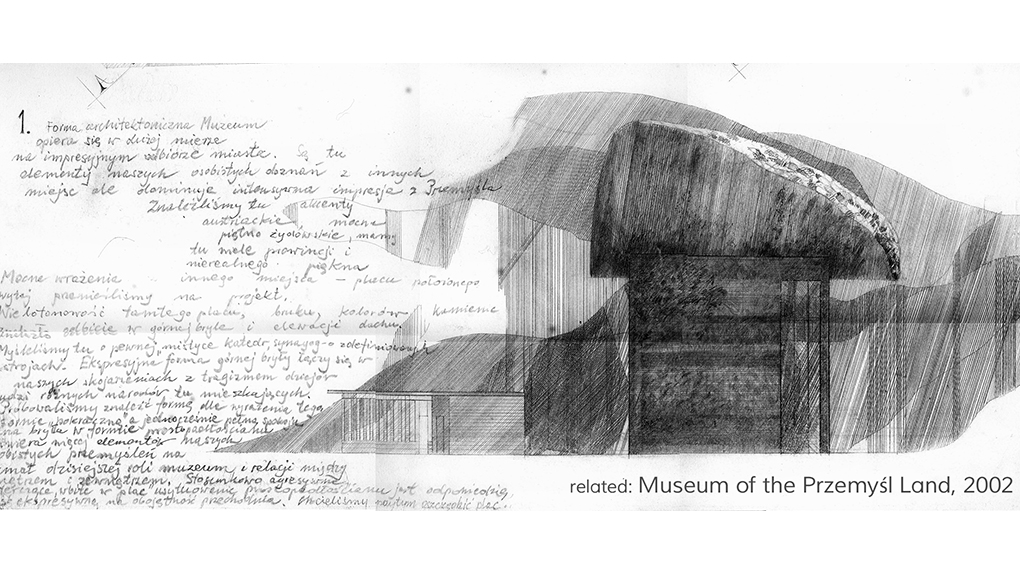 1. Forma architektoniczna Muzeum
opiera się w dużej mierze
na impresyjnym odbiorze miasta. Są tu
elementy naszych osobistych doznań z innych
miejsc ale dominuje intensywna impresja z Przemyśla
Znaleźliśmy tu akcenty
austriackie mocne
piętno żydowskie, mamy
tu małe prowincji i
nierealnego piękna
Mocne wrażenie innego miejsca – placu położonego
wyżej przenieśliśmy na projekt.
Nielotonowość tamtego placu, bruku, kolorów kamienie
znalazło odbicie w górnej bryle i elewacji dachu.
Myśleliśmy tu o pewnej mistyce katedr, synagog - o
strojach. Ekspresyjna forma górnej bryły łączy się w
naszych skojarzeniach z tragizmem dziejów
ludzi różnych narodów tu mieszkających.
Próbowaliśmy znaleźć formę dla wyrażenia tego
formie "pokraczną" a jednocześnie pełną spokoju
bryła w formie prostopadłościanu
zawiera więcej elementów naszych
osobistych przemyśleń na
temat dzisiejszej roli muzeum i relacji między
wnętrzem i zewnętrzem. Stosunkowo agresywne
wbite w plac usytuowanie prostopadłościanu jest odpowiedzią
ekspresywną na obojętność przechodnia. Chcieliśmy plac.
related: Museum of the Przemyśl Land, 2002